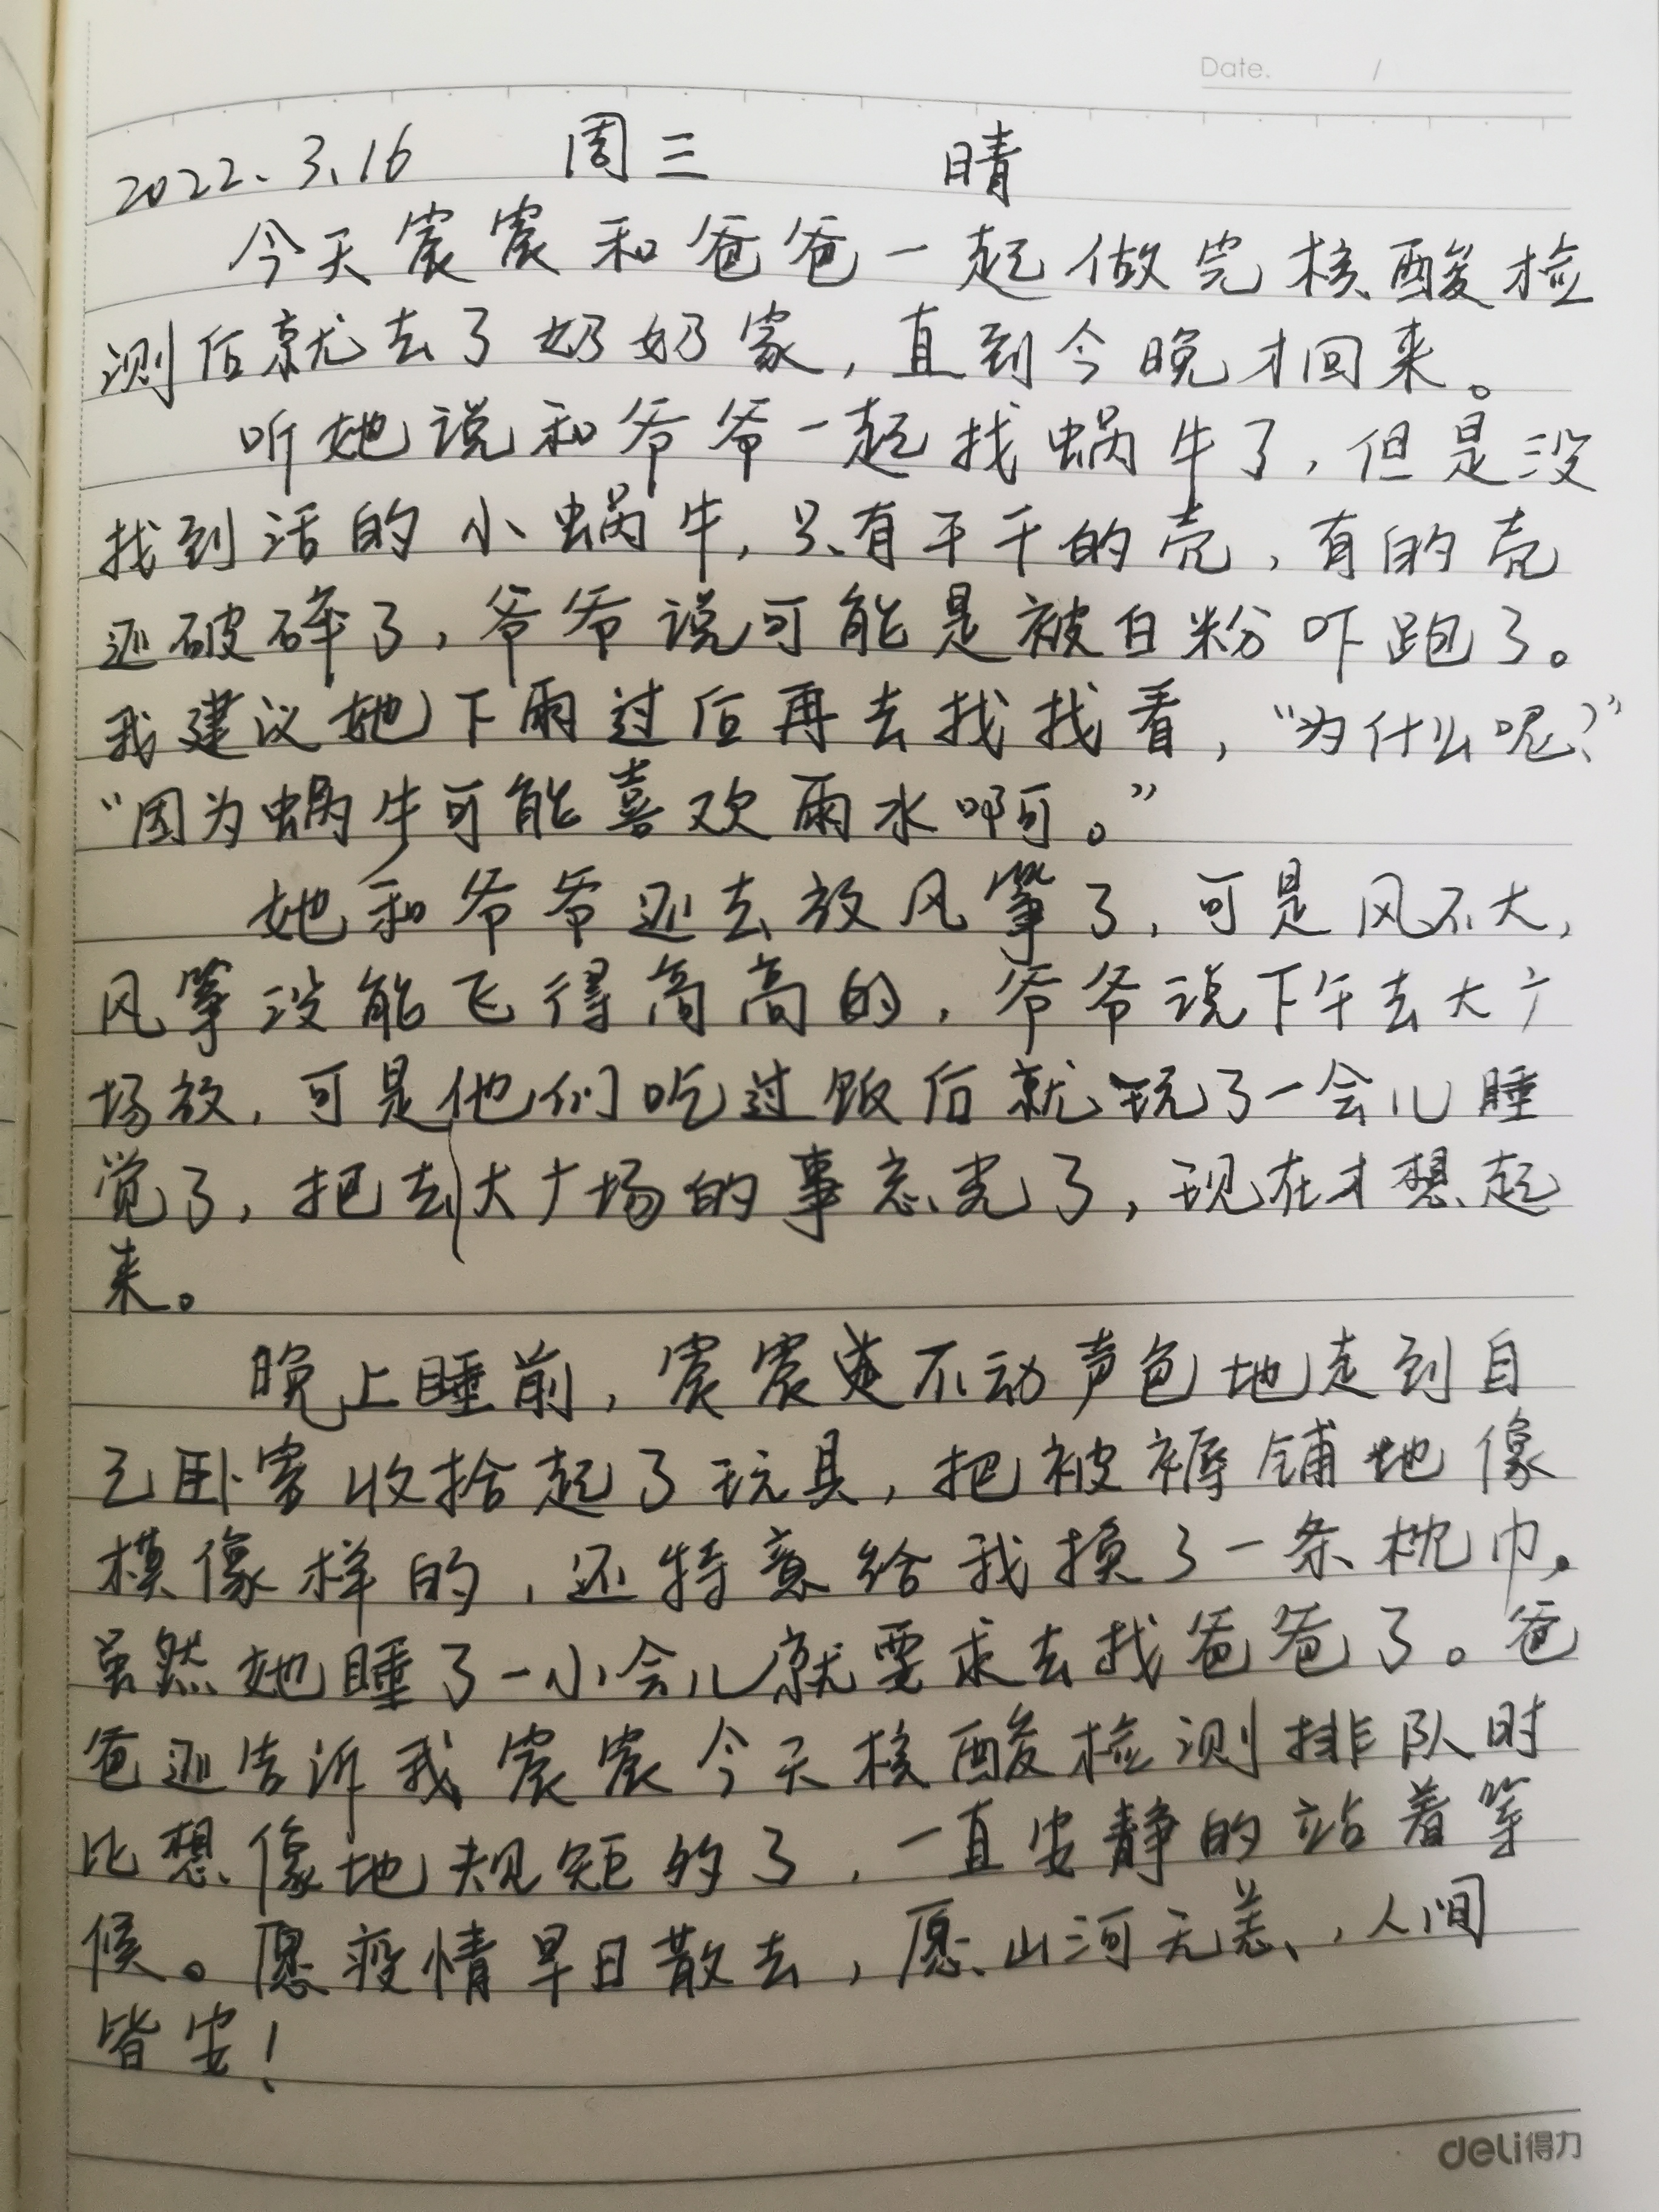 Date. /
2022.3.16 周三 晴
今天宸宸和爸爸一起做完核酸检
测后就去了奶奶家，直到今晚才回来。
听她说和爷爷一起找蜗牛了，但是没
找到活的小蜗牛，只有干干的壳，有的壳
还破碎了，爷爷说可能是被白粉吓跑了。
我建议她下雨过后再去找找看，“为什么呢？”
“因为蜗牛可能喜欢雨水啊。”
她和爷爷还去放风筝了，可是风不大，
风筝没能飞得高高的，爷爷说下午去大广
场放，可是他们吃过饭后就玩了一会儿睡
觉了，把去大广场的事忘光了，现在才想起
来。
晚上睡前，宸宸不动声色地走到自
己卧室收拾起了玩具，把被褥铺地像
模像样的，还特意给我换了一条枕巾。
虽然她睡了一小会儿就要求去找爸爸了。爸
爸还告诉我宸宸今天核酸检测排队时
比想像地规矩的了，一直安静的站着等
候。愿疫情早日散去，愿山河无恙，人间
皆安！
deli得力